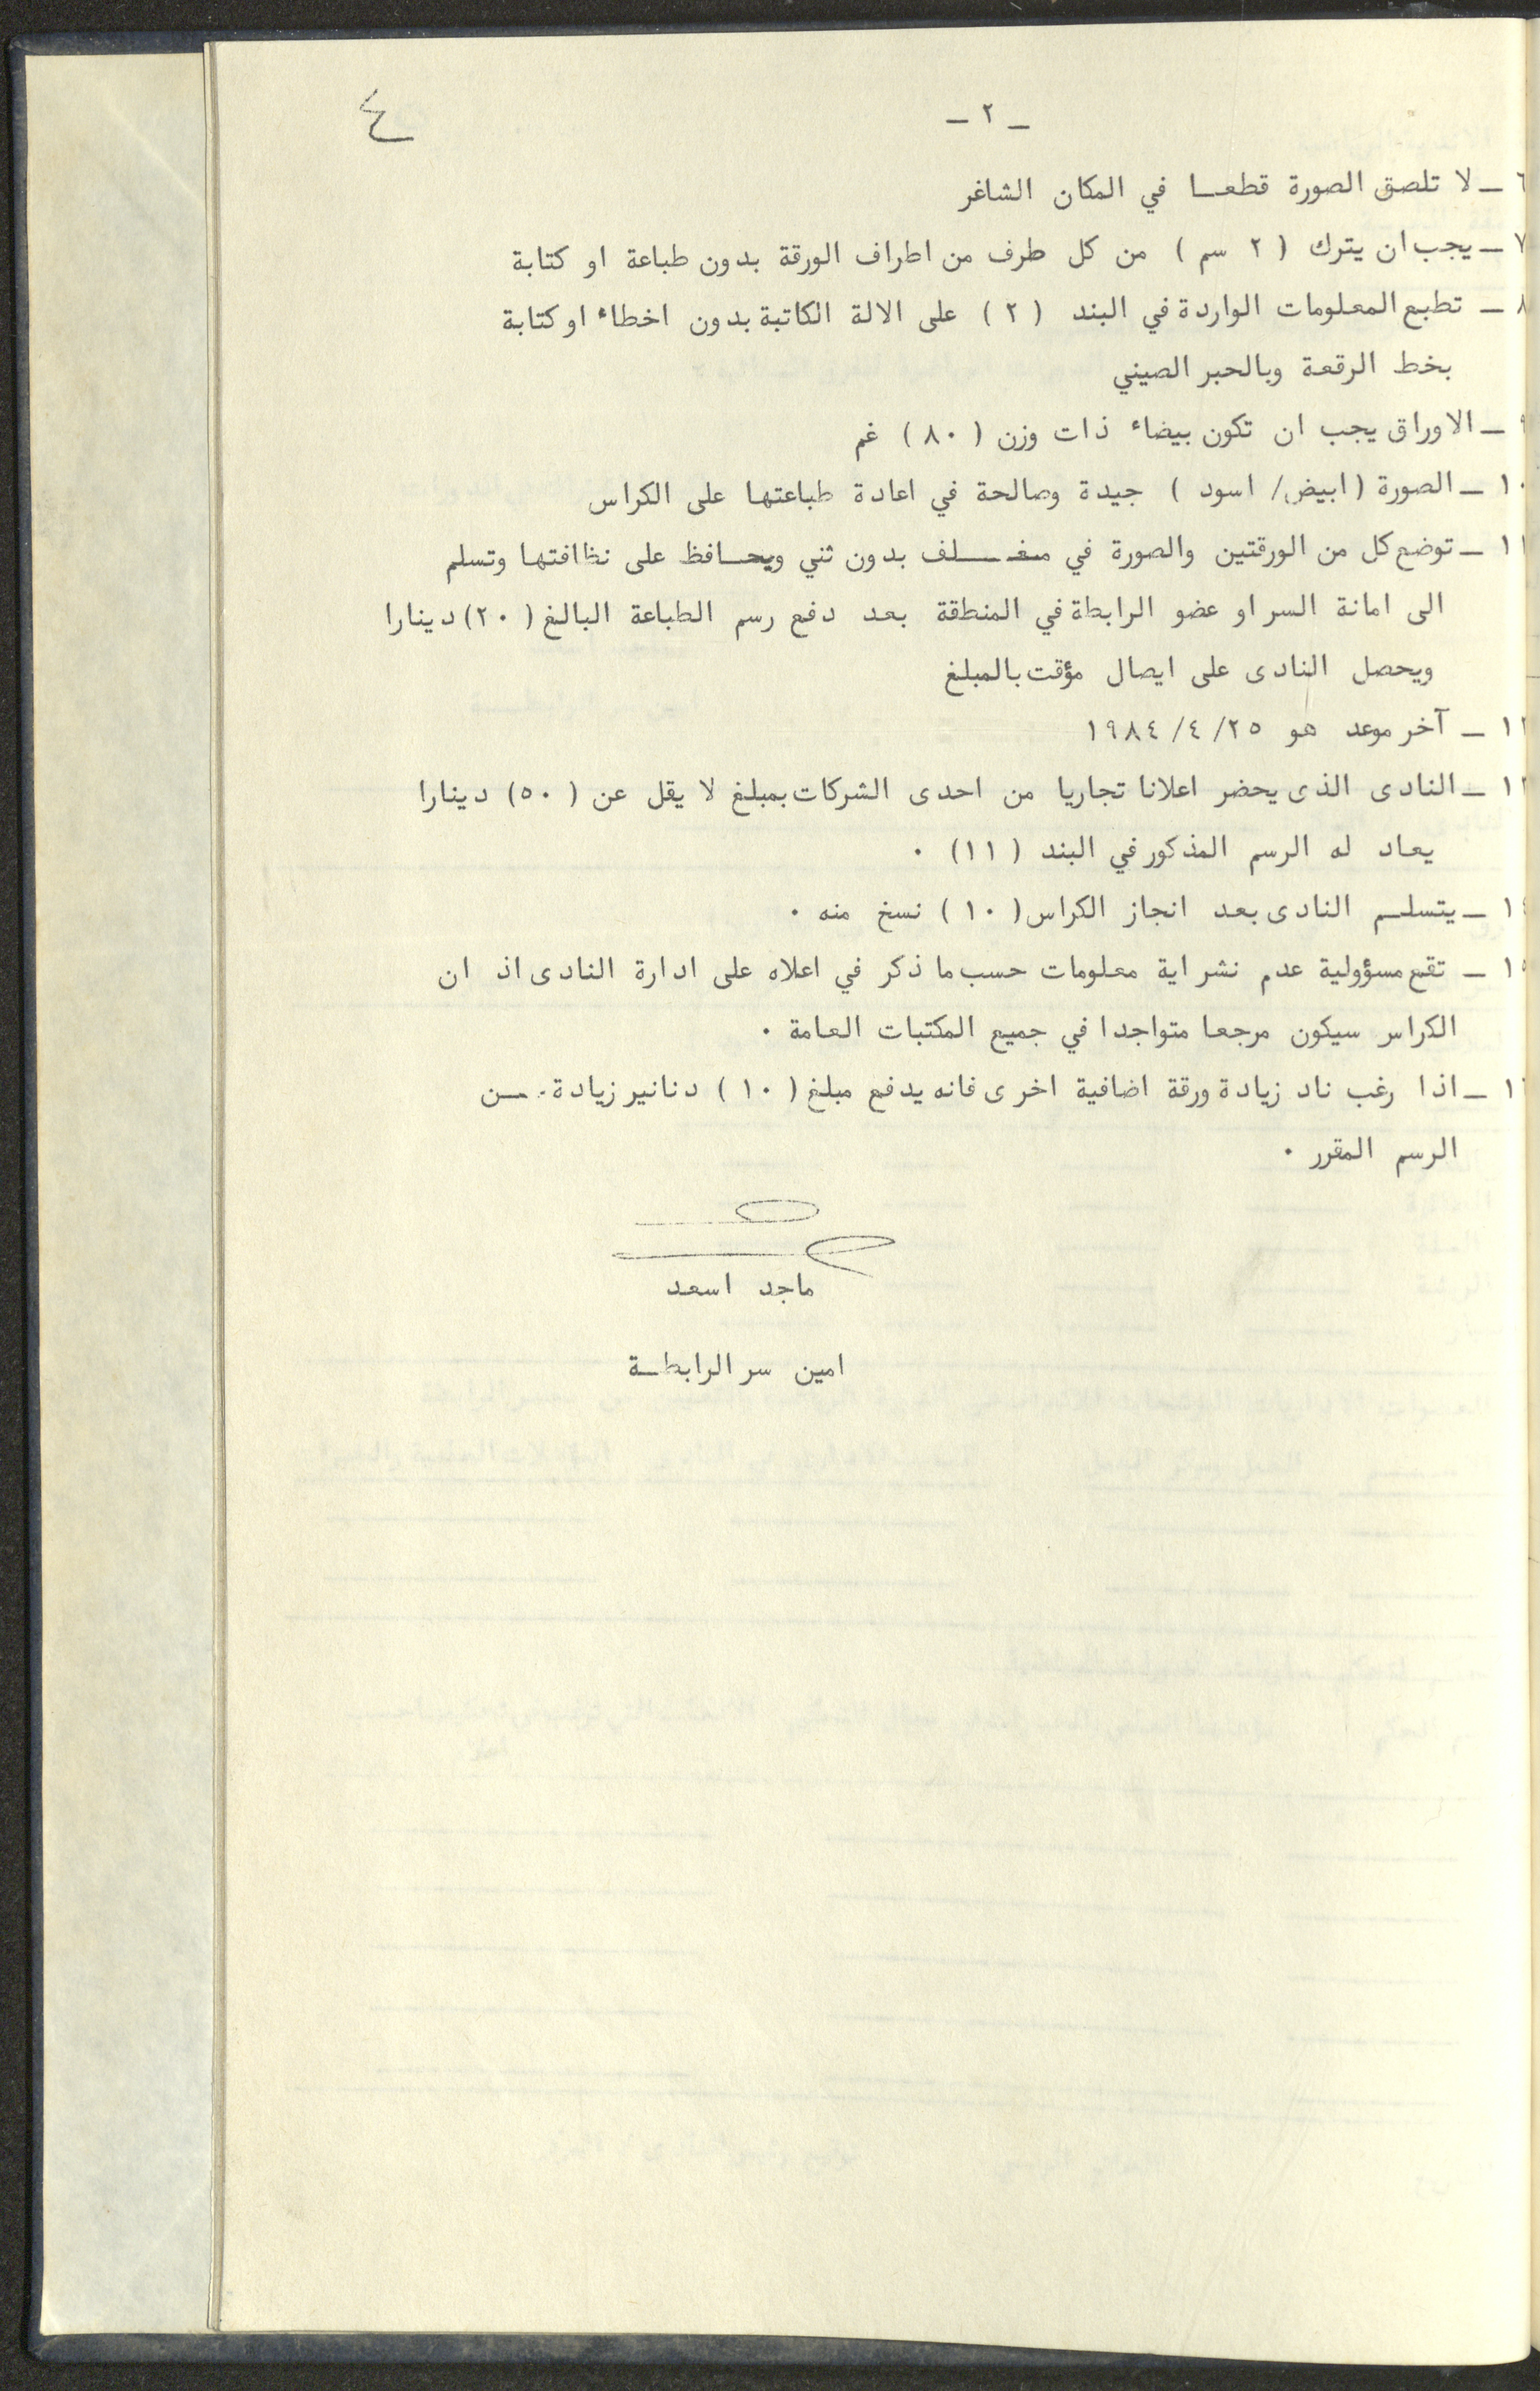 ٤
ـ ٢ ـ
٦ ـ لا تلصق الصورة قطعـا في المكان الشاغر
٧ ـ يجب ان يترك ( ٢ سم ) من كل طرف من اطراف الورقة بدون طباعة او كتابة
٨ ـ تطبع المعلومات الواردة في البند ( ٢ ) على الالة الكاتبة بدون اخطاء او كتابة
بخط الرقعة وبالحبر الصيني
٩ ـ الاوراق يجب ان تكون بيضاء ذات وزن ( ٨٠ ) غم
١٠ ـ الصورة ( ابيض/ اسود ) جيدة وصالحة في اعادة طباعتها على الكراس
١١ ـ توضع كل من الورقتين والصورة في مغـلف بدون ثني ويحـافظ على نظافتها وتسلم
الى امانة السر او عضو الرابطة في المنطقة بعد دفع رسم الطباعة البالغ ( ٢٠) دينارا
ويحصل النادى على ايصال مؤقت بالمبلغ
١٢ ـ آخر موعد هو ٢٥/ ٤/ ١٩٨٤
١٣ ـ النادى الذى يحضر اعلانا تجاريا من احدى الشركات بمبلغ لا يقل عن ( ٥٠) دينارا
يعاد له الرسم المذكور في البند ( ١١) ٠
١٤ ـ يتسلـم النادى بعد انجاز الكراس ( ١٠ ) نسخ منه ٠
١٥ ـ تقع مسؤولية عدم نشر اية معلومات حسب ما ذكر في اعلاه على ادارة النادى اذ ان
الكراس سيكون مرجعا متواجدا في جميع المكتبات العامة ٠
١٦ ـ اذا رغب ناد زيادة ورقة اضافية اخرى فانه يدفع مبلغ ( ١٠ ) دنانير زيادة
الرسم المقرر ٠
ماجد اسعد
امين سر الرابطـة